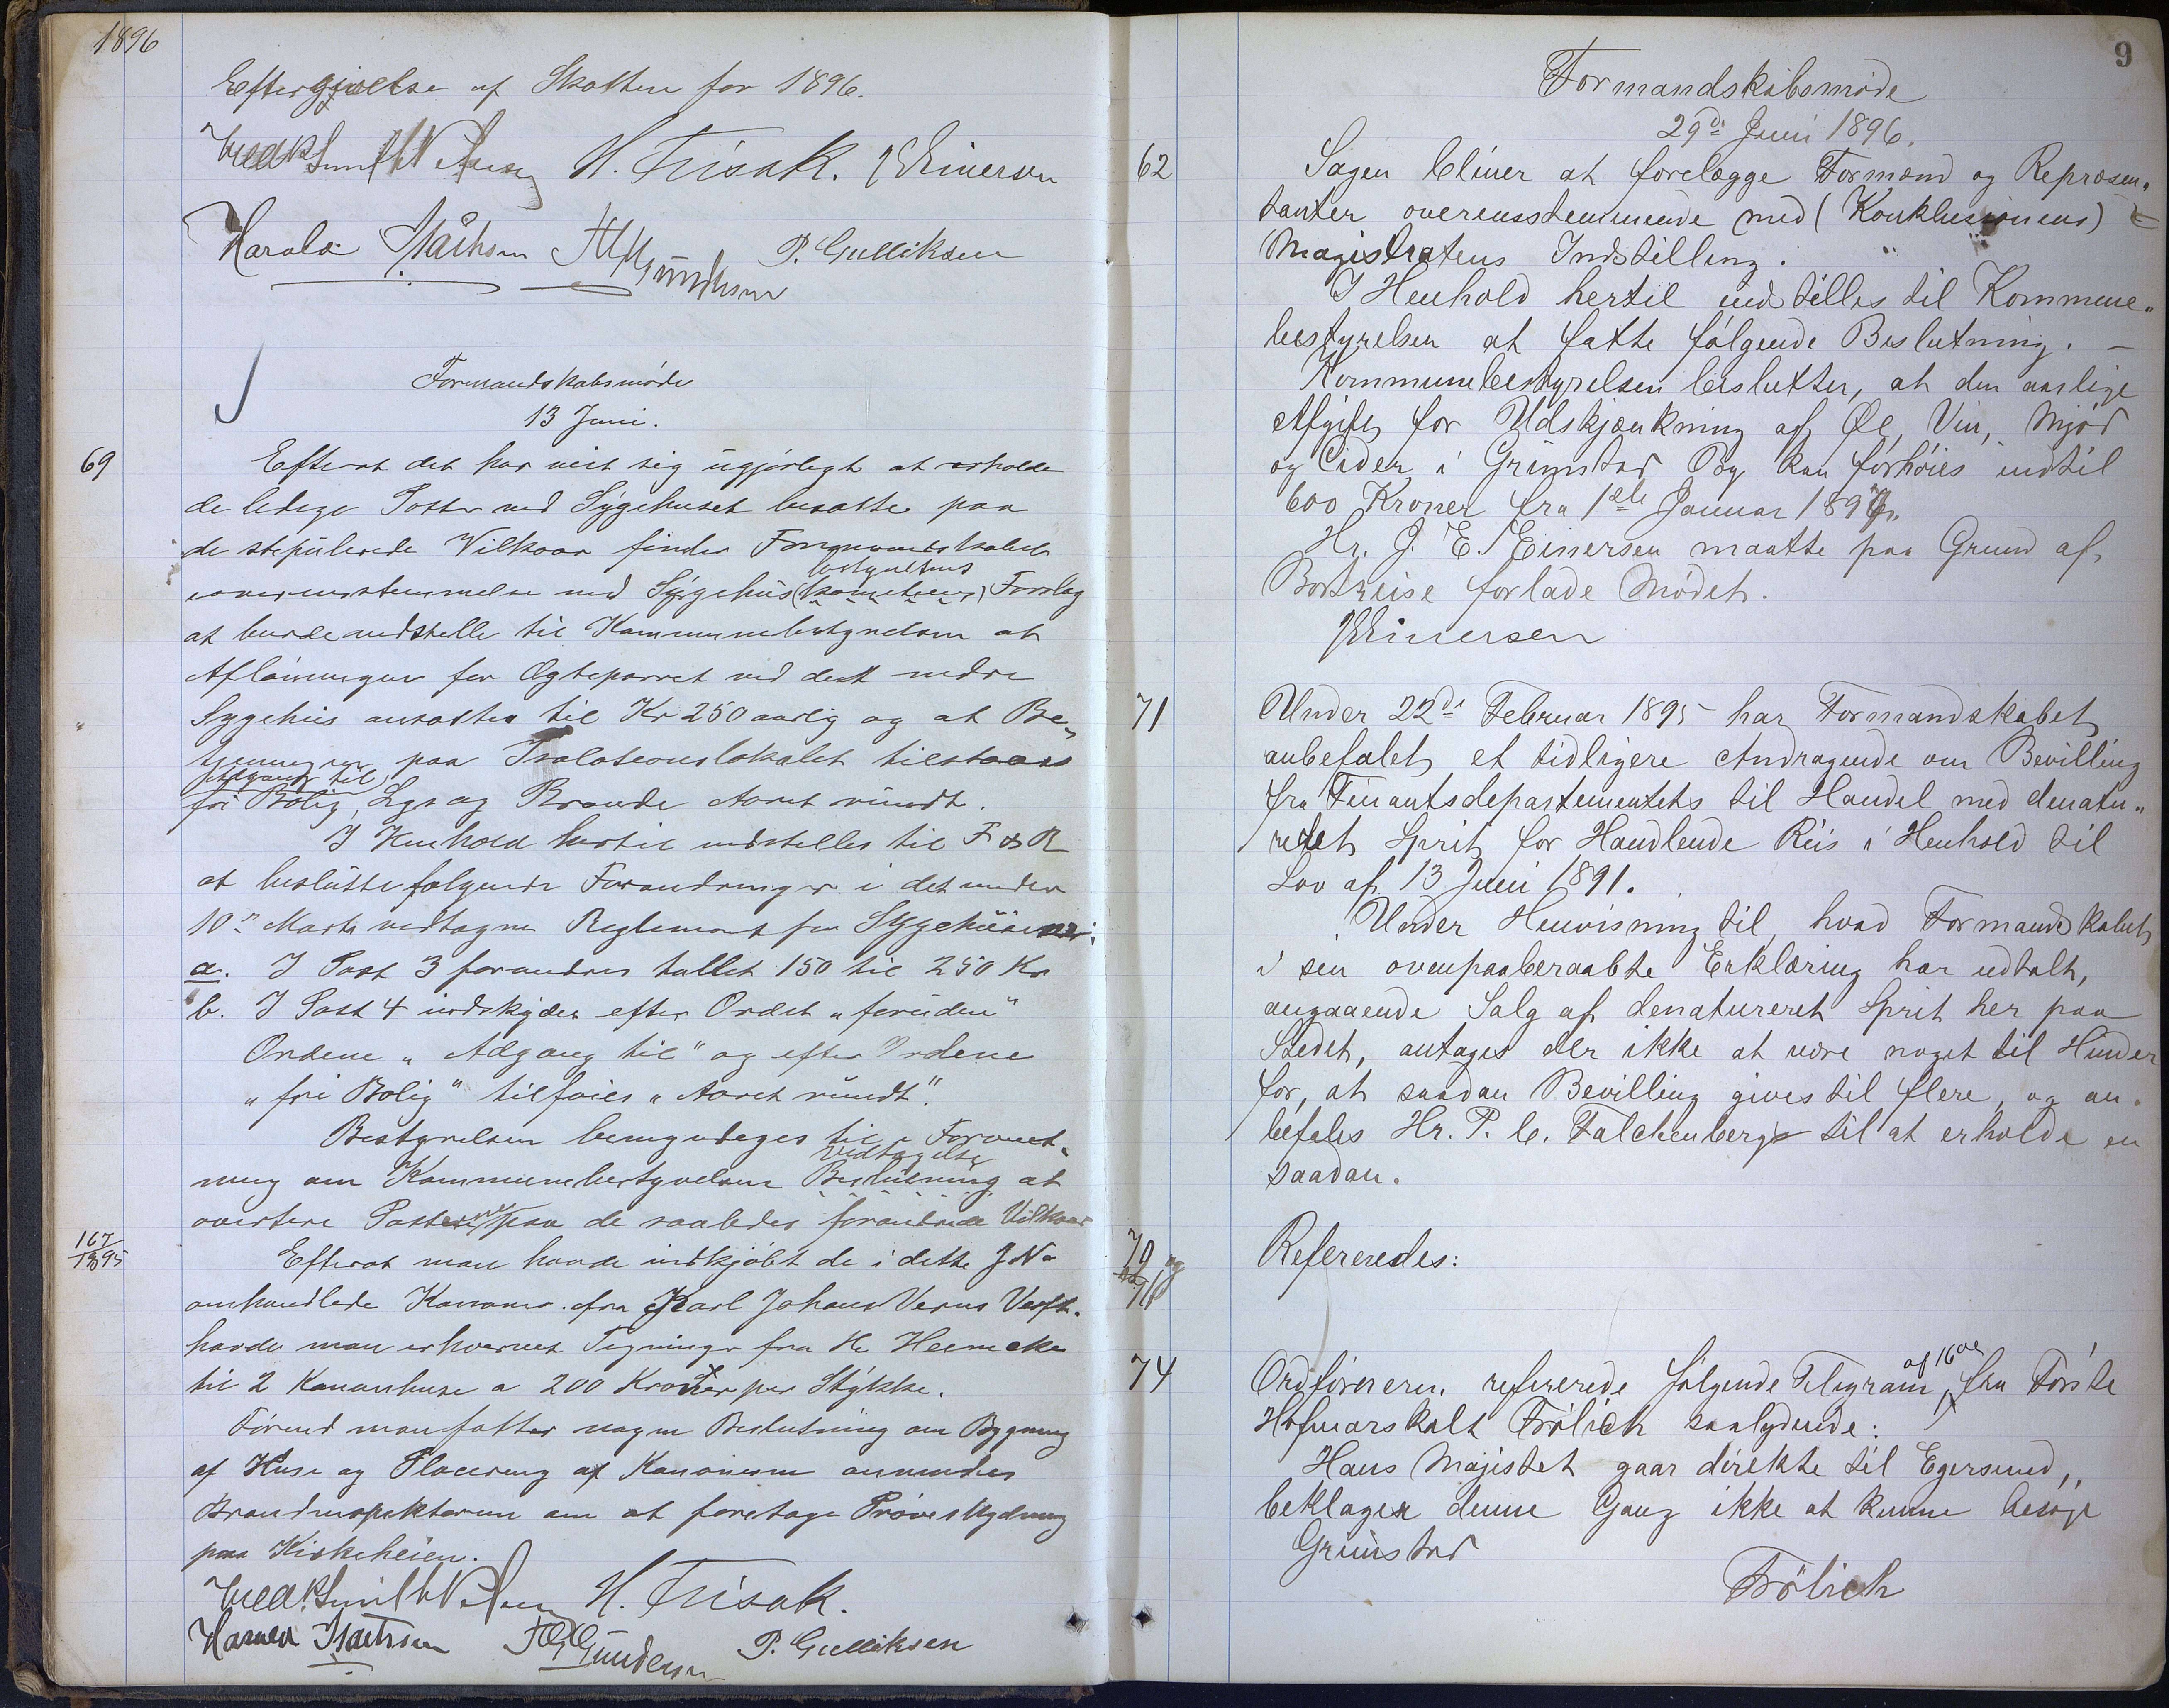 1896
Eftergivelse af Skatten for 1896.
H. Frisak. J E Einersen
Harald P. Gulliksen
Formandskabsmøde
13 Juni.
69
Efterat det har vist sig ugjørligt at erholde
de ledige Poster ved Sygehuset besatte paa
de stipulerede Vilkaar finder Formandskabet
bestyrelsens
i overensstemmelse med Sygehus(komiteens) Forslag
at burde indstille til Kommunebestyrelsen at
Aflønningen for Ægteparret ved det nedre
Sygehus ansættes til Kr 250 aarlig og at Be-
tjeningen paa Isolationslokalet tilstaaes
Adgang til
fri Bolig, Lys og Brænde Aaret rundt.
I Henhold hertil indstilles til F & R
at beslutte følgende Forandringer i det under
10de Marts vedtagne Reglement for Sygehusene:
a. I Post 3 forandres tallet 150 til 250 Kr
b. I Post 4 indskydes efter Ordet "foruden"
Ordene "Adgang til" og efter Ordene
"fri Bolig" tilføies "Aaret rundt".
Bestyrelsen bemyndiges til i Forvent-
vedtagelse
ning om Kommunebestyrelsens Beslutning at
avertere Posterne paa de saaledes forandrede Vilkaar
167/1895
Efterat man havde indkjøbt de i dette J No
omhandlede Kanoner fra Karl Johans Verns Verft.
havde man erhvervet Tegninger fra Hr Heincke
til 2 Kanonhuse a 200 Kroner per Stykke.
Førend man fatter nogen Beslutning om Bygning
af Huse og Placering af Kanonerne anmodes
Brandinspektøren om at foretage Prøveskydning
paa Kirkeheien.
H. Frisak.
Harald P. Gulliksen
9
Formandskabsmøde
29de Juni 1896.
62
Sagen bliver at forelægge Formænd og Repræsen-
tanter overensstemmende med (Konklusionens)
Magistratens Indstilling.
I Henhold hertil indstilles til Kommune-
bestyrelsen at fatte følgende Beslutning. –
Kommunebestyrelsen beslutter, at den aarlige
Afgift for Udskjænkning af Øl, Vin, Mjød
og Cider i Grimstad By kan forhøies indtil
600 Kroner fra 1ste Januar 1897.
Hr. J. E. Einersen maatte paa Grund af
Bortreise forlade Mødet.
J E Einersen
71
Under 22de Februar 1895 har Formandskabet
anbefalet et tidligere Andragende om Bevilling
fra Finantsdepartementets til Handel med denatu-
reret Sprit for Handlende Riis i Henhold til
Lov af 13 Juni 1891.
Under Henvisning til, hvad Formandskabet
i sin ovenpaaberaabte Erklæring har udtalt,
angaaende Salg af denatureret Sprit her paa
Stedet, antages der ikke at være noget til Hinder
for, at saadan Bevilling gives til flere, og an-
befales Hr. P. C. Falchenberg til at erholde en
saadan.
70 og
Refereredes:
74
af 16de
Ordføreren refererede følgende Telegram fra Første
Hofmarskalk Frölich saalydende:
Hans Majistet gaar direkte til Egersund,
beklager denne Gang ikke at kunne besøge
Grimstad
Frölich